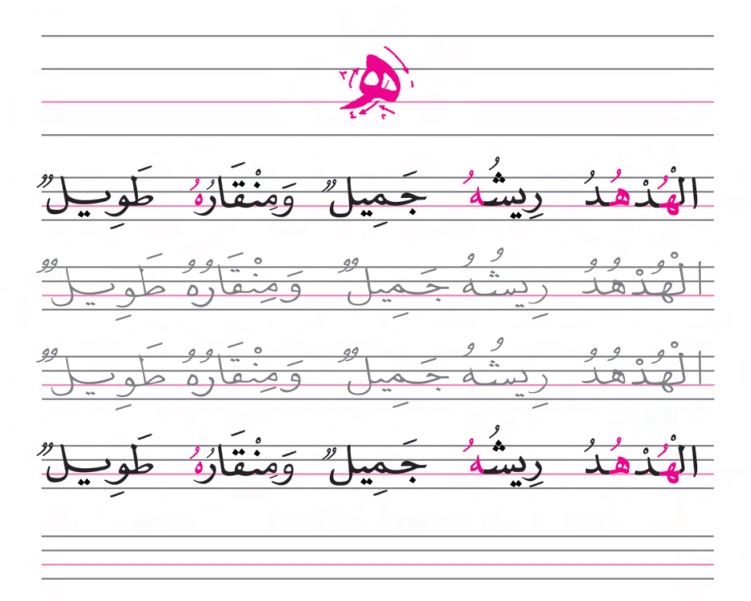 هـ ١ ٢ ٣ ٤
الْهُدْهُدُ رِيشُهُ جَمِيلٌ وَمِنْقَارُهُ طَوِيلٌ
الْهُدْهُدُ رِيشُهُ جَمِيلٌ وَمِنْقَارُهُ طَوِيلٌ
الْهُدْهُدُ رِيشُهُ جَمِيلٌ وَمِنْقَارُهُ طَوِيلٌ
الْهُدْهُدُ رِيشُهُ جَمِيلٌ وَمِنْقَارُهُ طَوِيلٌ